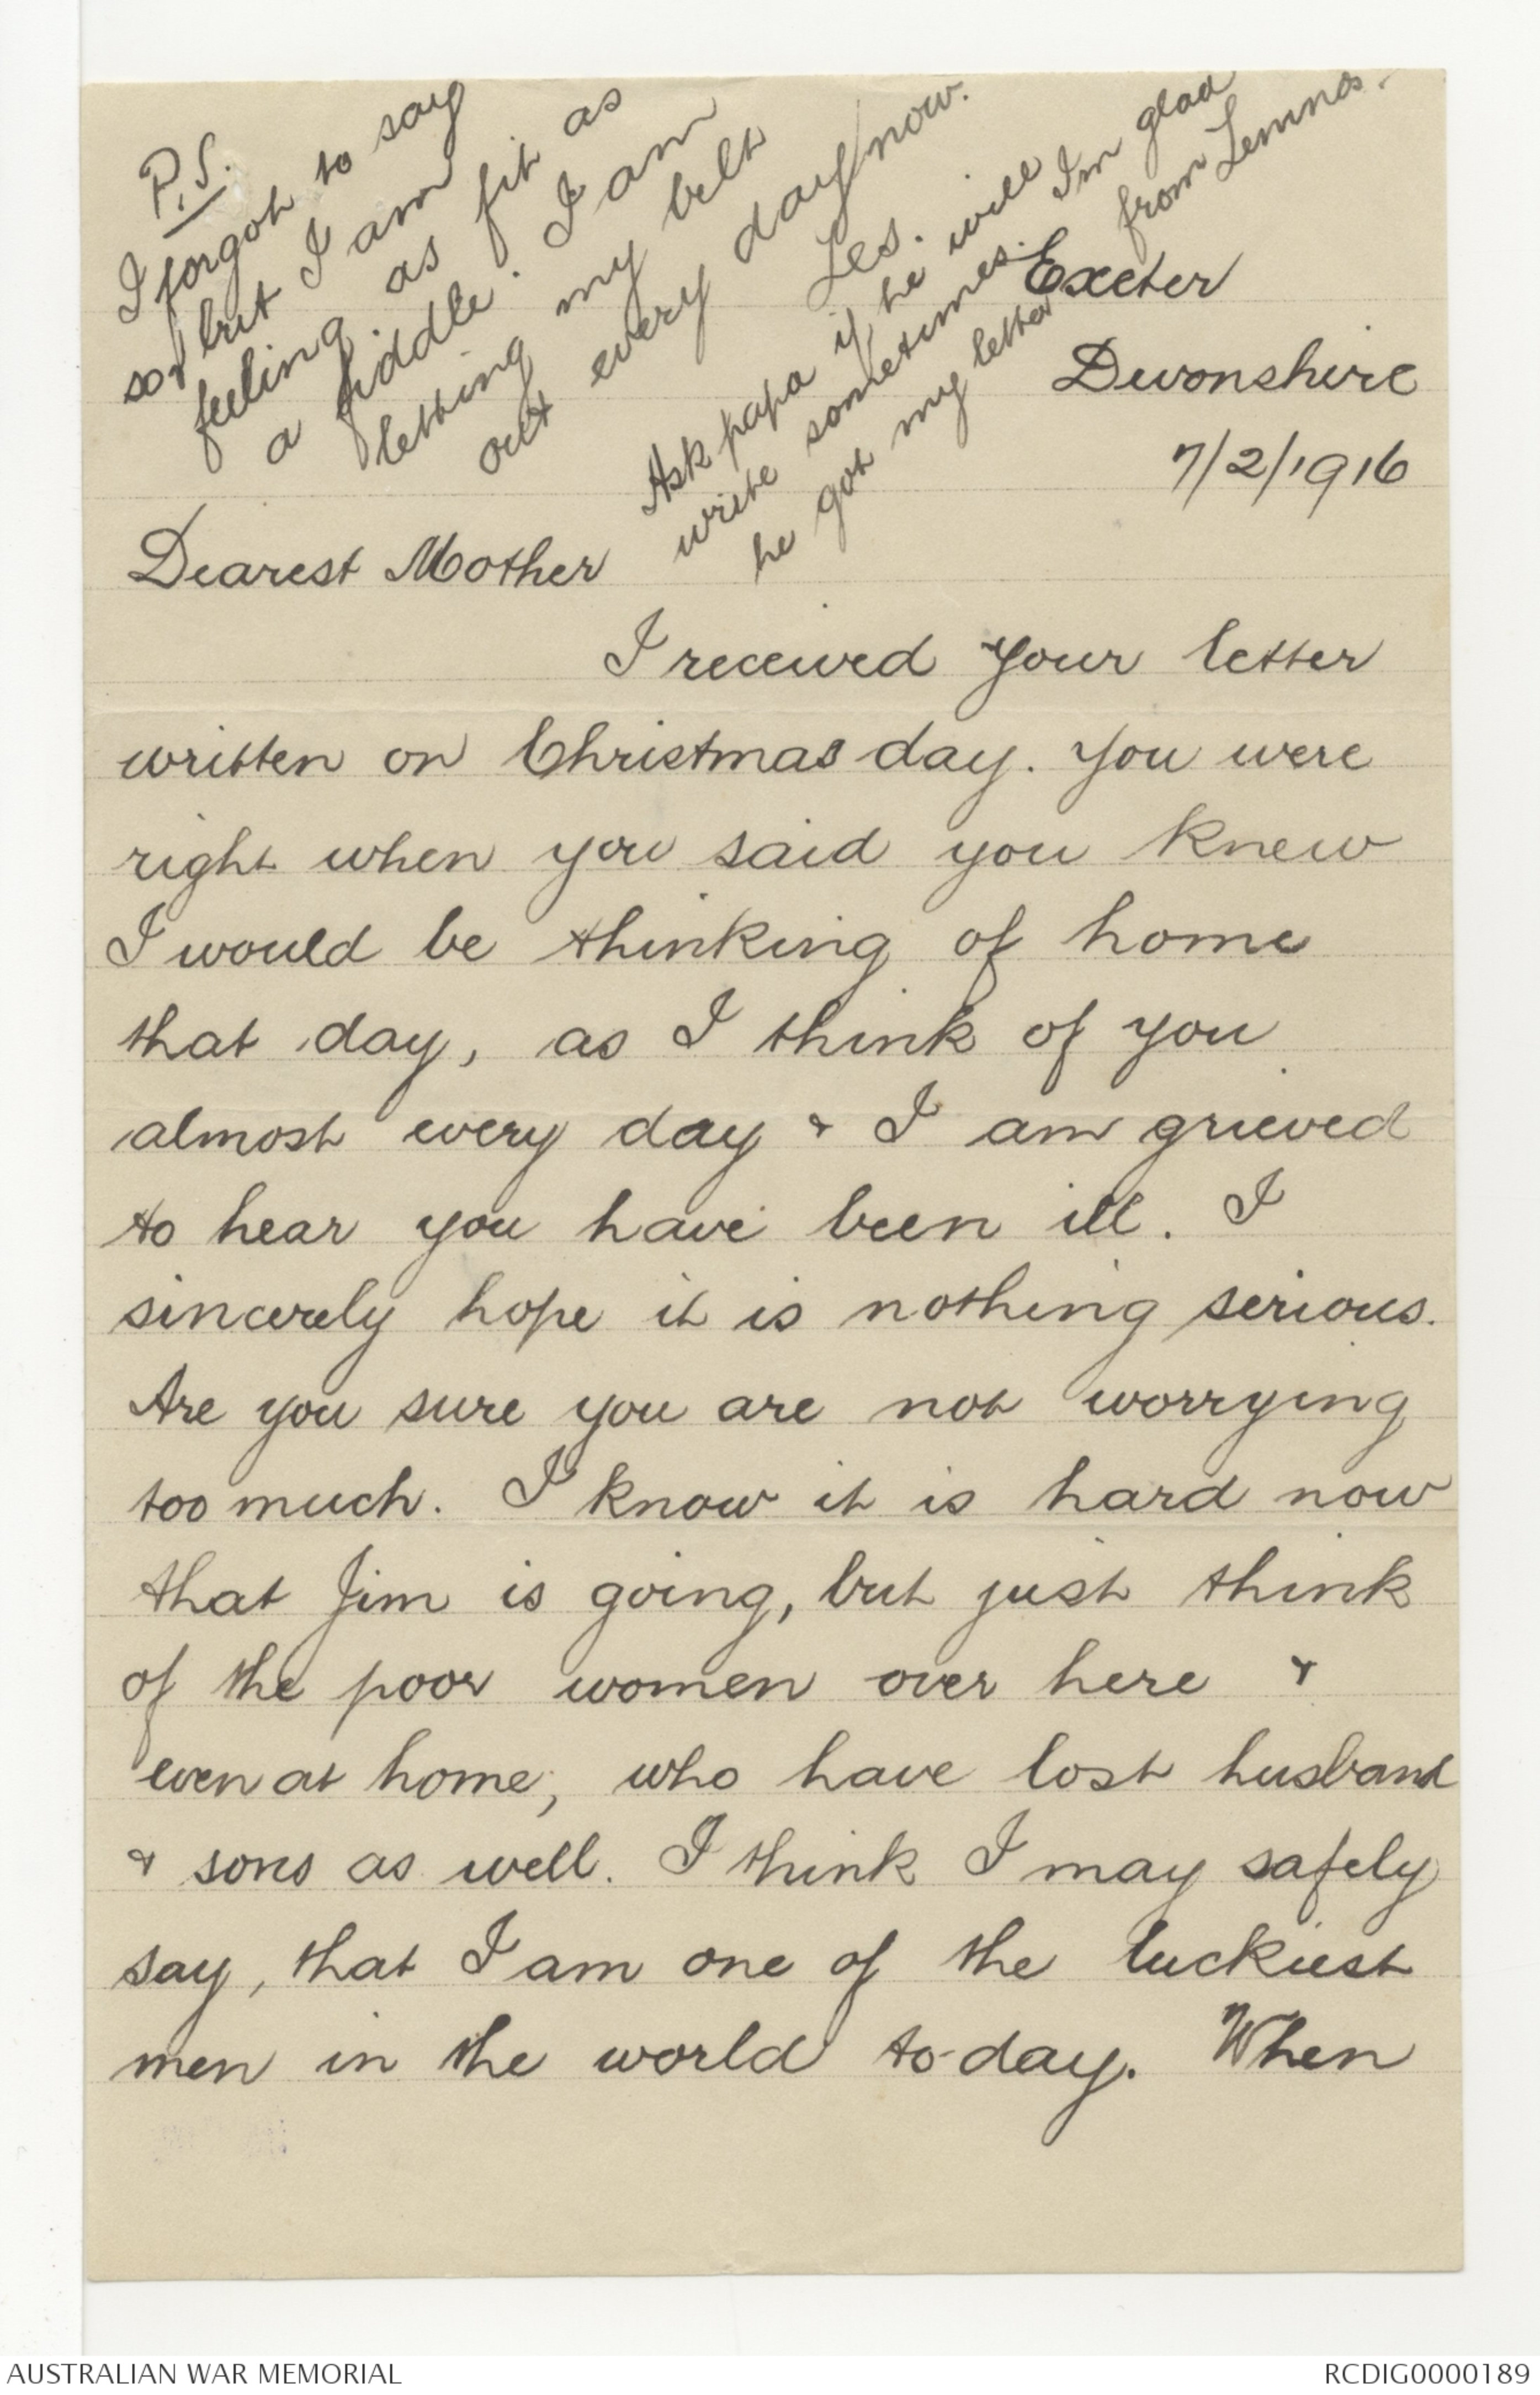 P.S.
I forgot to say
so, but I am
feeling as fit as
a fiddle. I am
letting my belt
out every day now.
Les.
Ask papa if he will
write sometimes. I'm glad
he got my letter from Lemnos.
Exeter
Devonshire
7/2/1916
Dearest Mother
I received your letter
written on Christmas day. You were
right when you said you knew
I would be thinking of home
that day, as I think of you
almost every day & I am grieved
to hear you have been ill. I
sincerely hope it is nothing serious.
Are you sure you are not worrying
too much. I know it is hard now
that Jim is going, but just think
of the poor women over here &
even at home, who have lost husband
& sons as well. I think I may safely
say, that I am one of the luckiest
men in the world to-day. When
AUSTRALIAN WAR MEMORIAL
RCDIG0000189